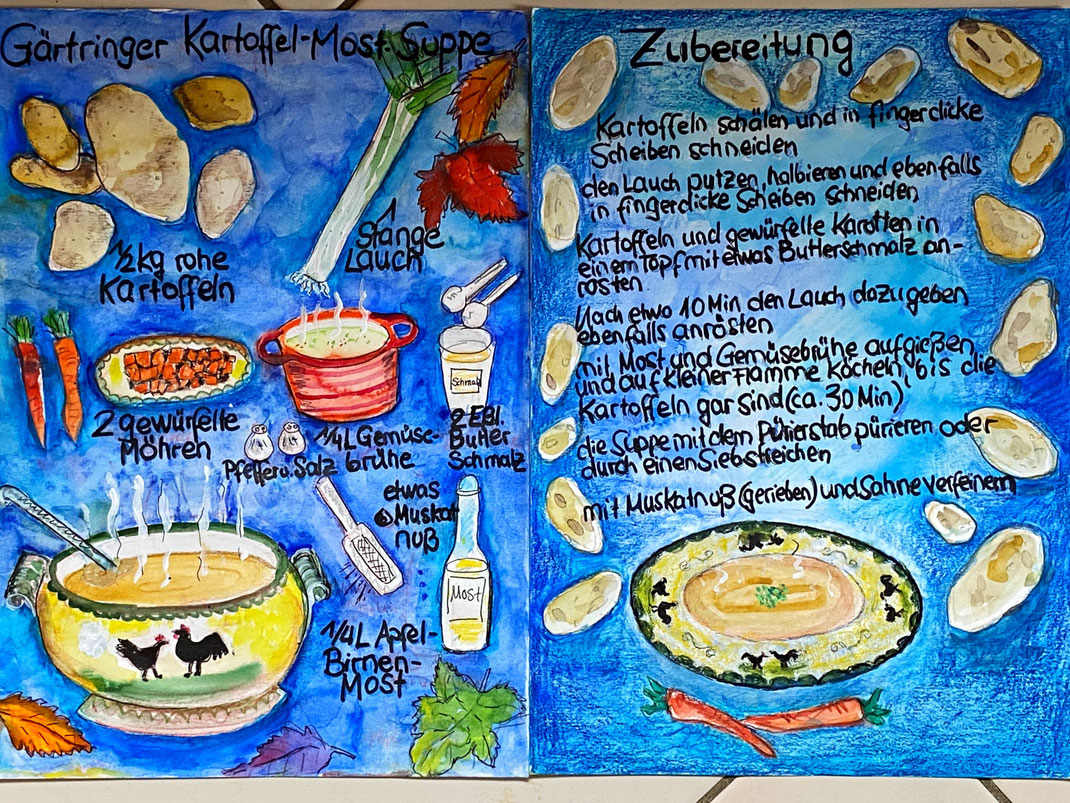 Gärtringer Kartoffel-Most Suppe
1/2 kg rohe
Kartoffeln
1
Stange
Lauch
2 gewürfelte
Möhren
Pfeffer u. Salz
1/4 L Gemüse-
brühe
Schmalz
2 EßL.
Butter
Schmalz
etwas
Muskat
nuß
Most
1/4 L Apfel-
Birnen-
Most
Zubereitung
Kartoffeln schälen und in fingerdicke
Scheiben schneiden
den Lauch putzen, halbieren und ebenfalls
in fingerdicke Scheiben schneiden,
Kartoffeln und gewürfelle Karotten in
einem Topf mit etwas Butterschmalz an-
rösten
Nach etwo 10 Min den Lauch dazugeben
ebenfalls anrösten
mit Most und Gemüsebrühe aufgießen
und auf kleiner Flamme köcheln, bis die
Kartoffeln gar sind (ca. 30 Min)
die Suppe mit dem Pürierstab pürieren oder
durch einen Sieb streichen
mit Muskatnuß (gerieben) und Sahne verfeinern